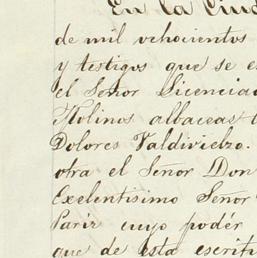 En la Ciud
de mil ochocientos
y testigos que se e
el Señor Licenciad
Molinos albaceas t
Dolores Valdivielzo.
otra el Señor Don
Exelentisimo Señor
Pariz cuyo podér
que de esta escritu